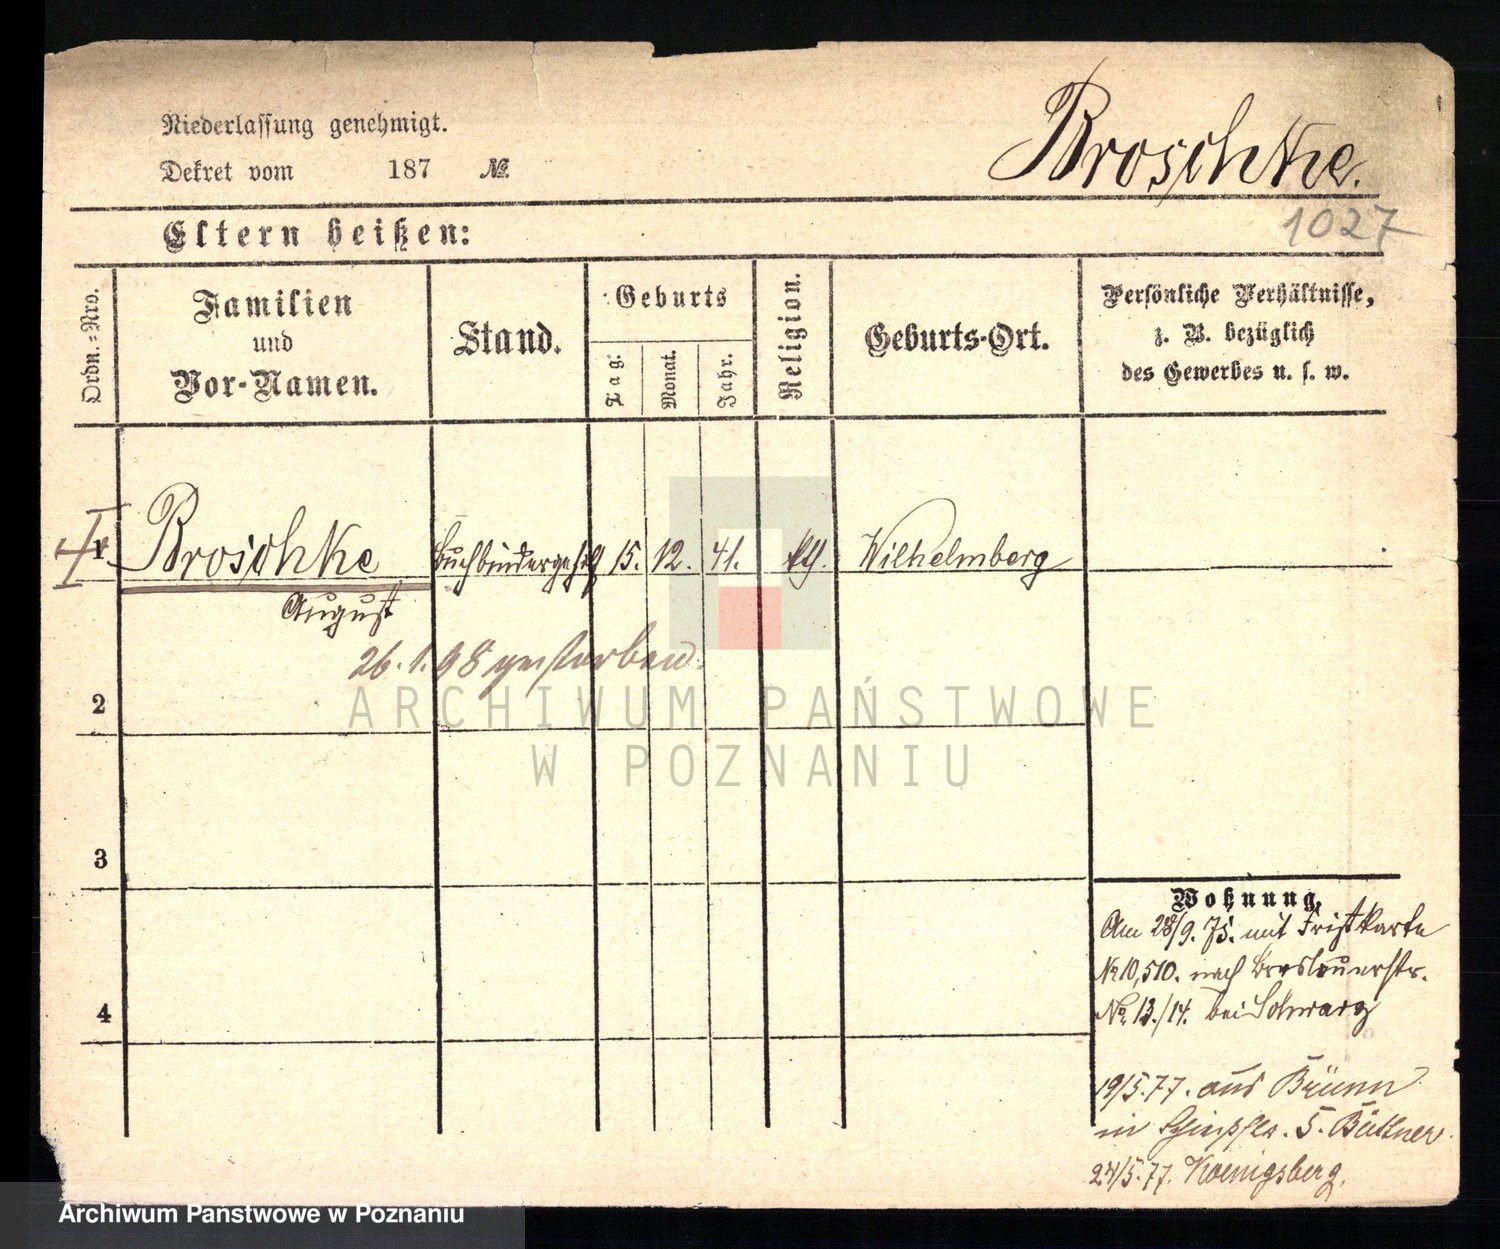 Niederlassung genehmigt.
Dekret vom 187 №.
Broschke.
1027
Eltern heißen:
Ordn.=Nro.
Familien
und
Vor-Namen.
Stand.
Geburts
Tag.
Monat.
Jahr.
Religion.
Geburts-Ort.
Persönliche Verhältnisse,
z. B. bezüglich
des Gewerbes u. s. w.
1 Broschke Buchbindergehilf 15. 12. 41. kth. Wilhelmberg
August
26.1.98 gestorben.
2
3
4
Wohnung.
Am 28/9. 75. mit Fristkarte
№ 10,510. nach Breslauerstr.
№. 13./14. bei Schwarz
19/5.77. aus Brünn
in 5. Büttner.
24/5.77. Koenigsberg.
ARCHIWUM PAŃSTWOWE
W POZNANIU
Archiwum Państwowe w Poznaniu